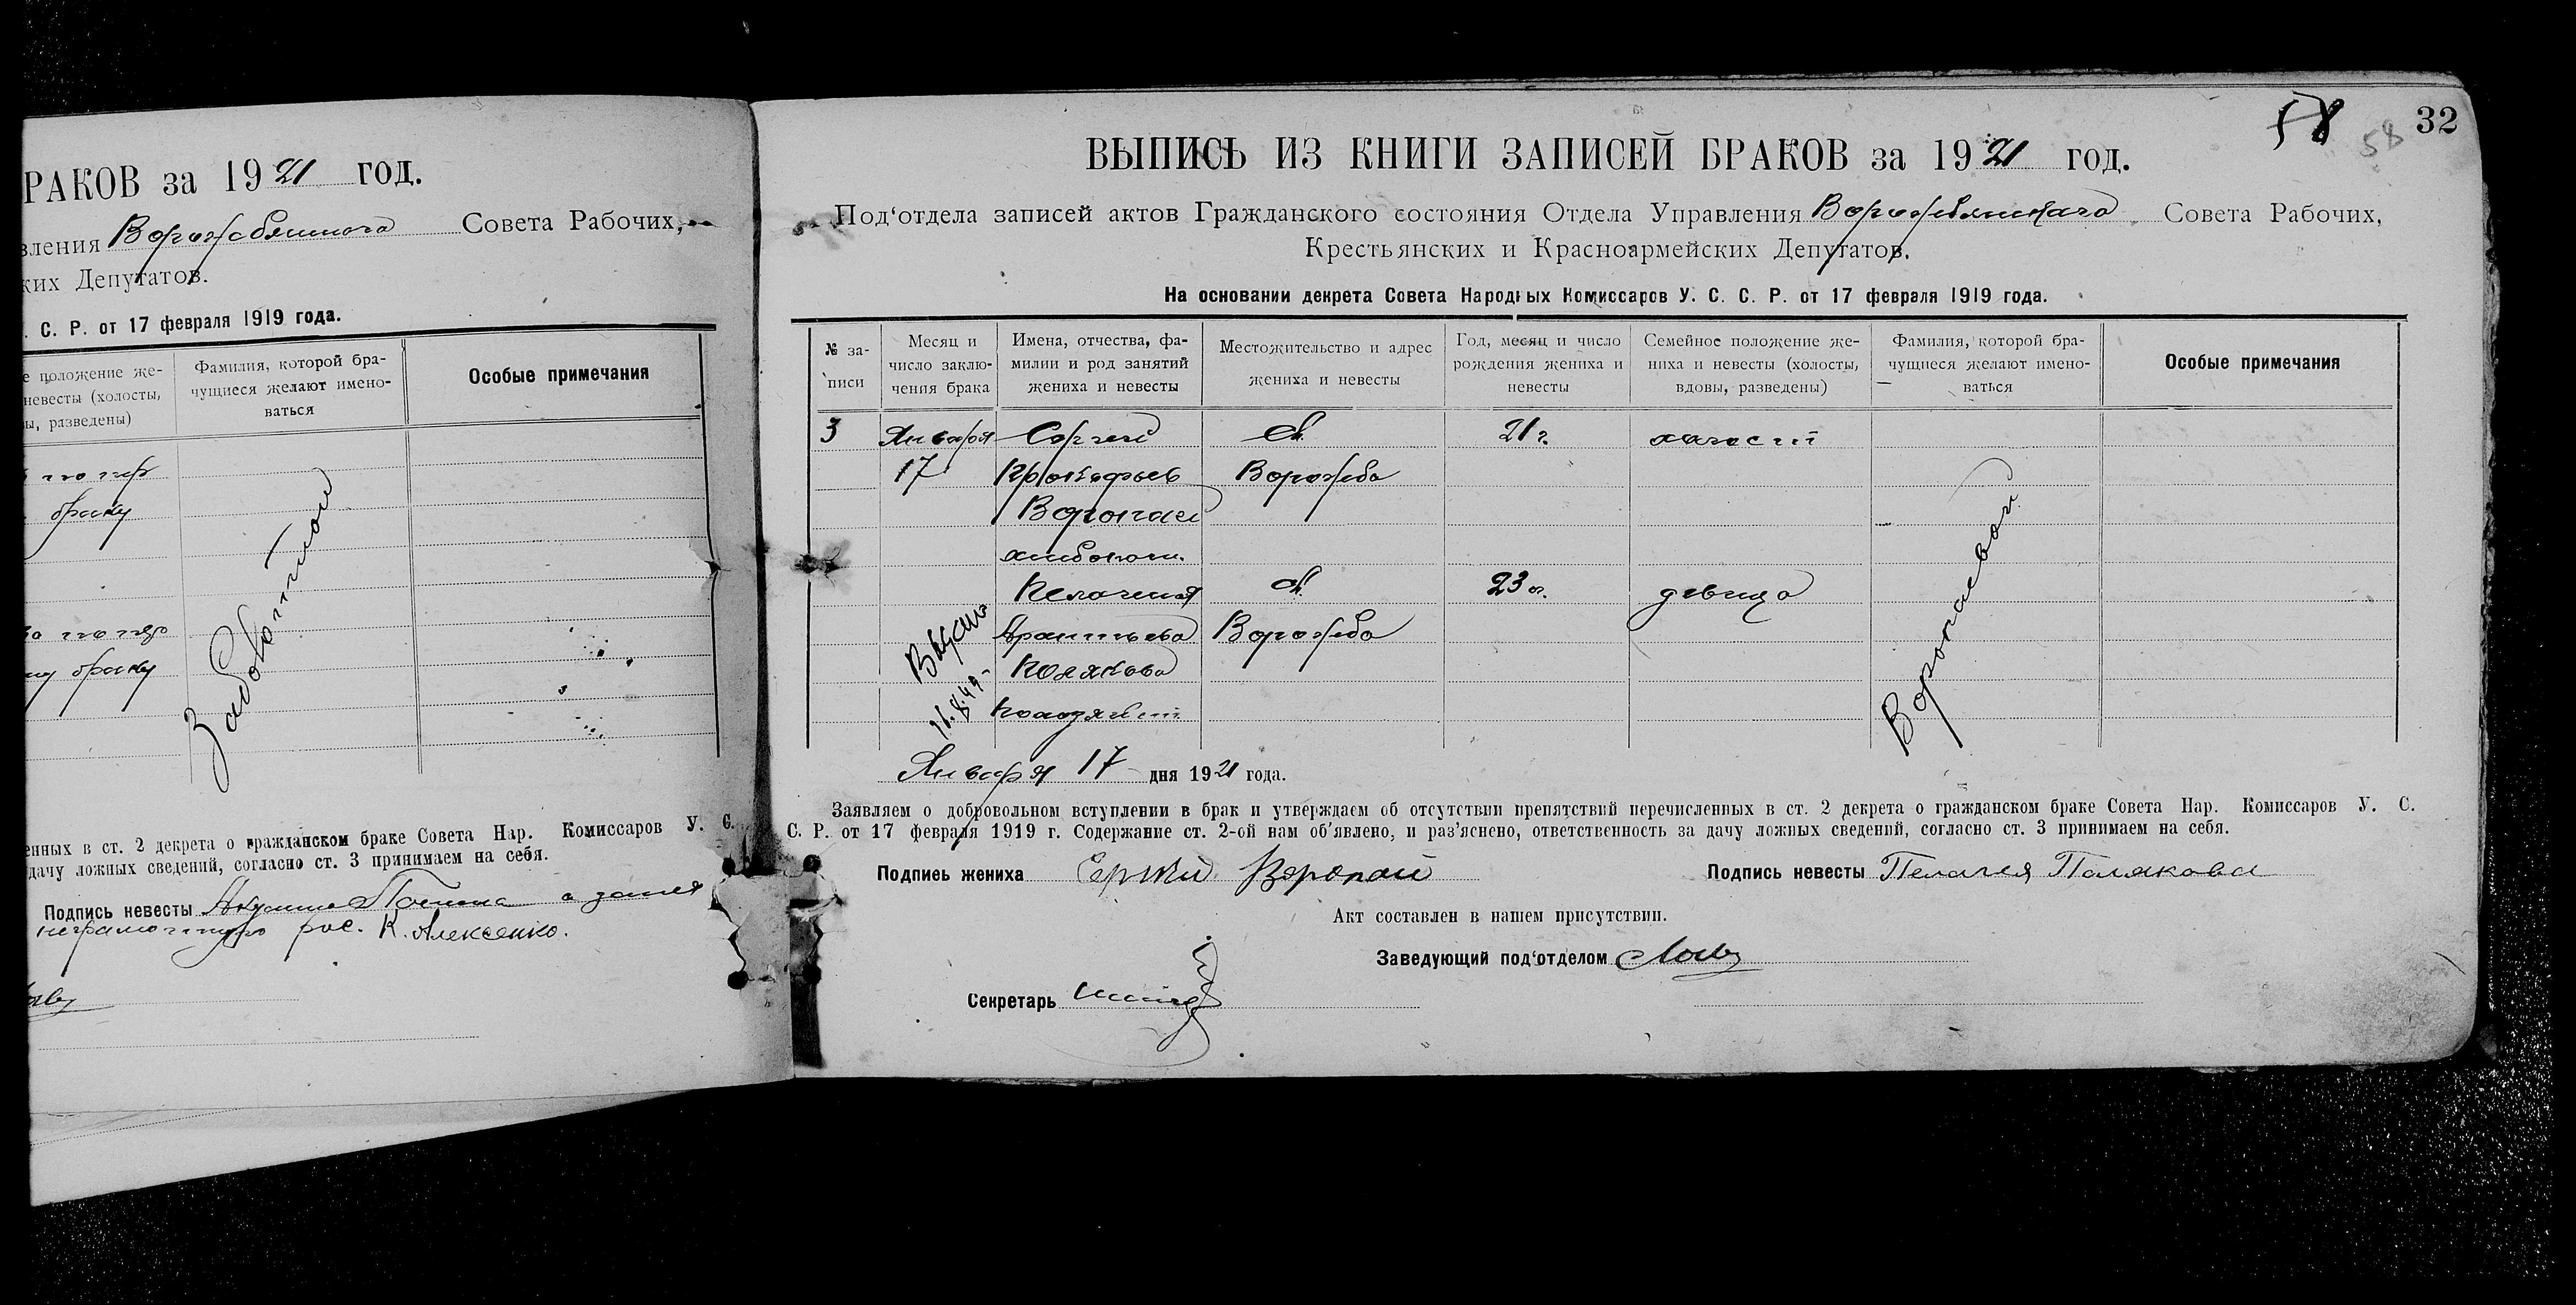 РАКОВ за 1921 год.
вления Ворожбянского Совета Рабочих,
ких Депутатов.
. С. Р. от 17 февраля 1919 года.
е положение же-
невесты (холосты,
ы, разведены)
Фамилия, которой бра-
чущиеся желают имено-
ваться
Особые примечания
браку
браку
енных в ст. 2 декрета о гражданском браке Совета Нар. Комиссаров У. С.
дачу ложных сведений, согласно ст. 3 принимаем на себя.
Подпись невесты
неграмотную рос. К. Алексенко.
58 58 32
ВЫПИСЬ ИЗ КНИГИ ЗАПИСЕЙ БРАКОВ за 1921 год.
Под'отдела записей актов Гражданского состояния Отдела Управления Ворожбянскаго Совета Рабочих,
Крестьянских и Красноармейских Депутатов.
На основании декрета Совета Народных Комиссаров У. С. С. Р. от 17 февраля 1919 года.
№ за-
писи
Месяц и
число заклю-
чения брака
Имена, отчества, фа-
милии и род занятий
жениха и невесты
Местожительство и адрес
жениха и невесты
Год, месяц и число
рождения жениха и
невесты
Семейное положение же-
ниха и невесты (холосты,
вдовы, разведены)
Фамилия, которой бра-
чущиеся желают имено-
ваться
Особые примечания
3 Января Сергей С. 21 г. холост
17 Прокофьев Ворожба
Воропай
хлебопаш.
Пелагия С. 23 г. девица
Ворожба
Полякова
Января 17 дня 1921 года.
Заявляем о добровольном вступлении в брак и утверждаем об отсутствии препятствий перечисленных в ст. 2 декрета о гражданском браке Совета Нар. Комиссаров У. С.
С. Р. от 17 февраля 1919 г. Содержание ст. 2-ой нам об'явлено, и раз'яснено, ответственность за дачу ложных сведений, согласно ст. 3 принимаем на себя.
Подпись жениха Сергей Воропай Подпись невесты Пелагея Полякова
Акт составлен в нашем присутствии.
Заведующий под'отделом
Секретарь